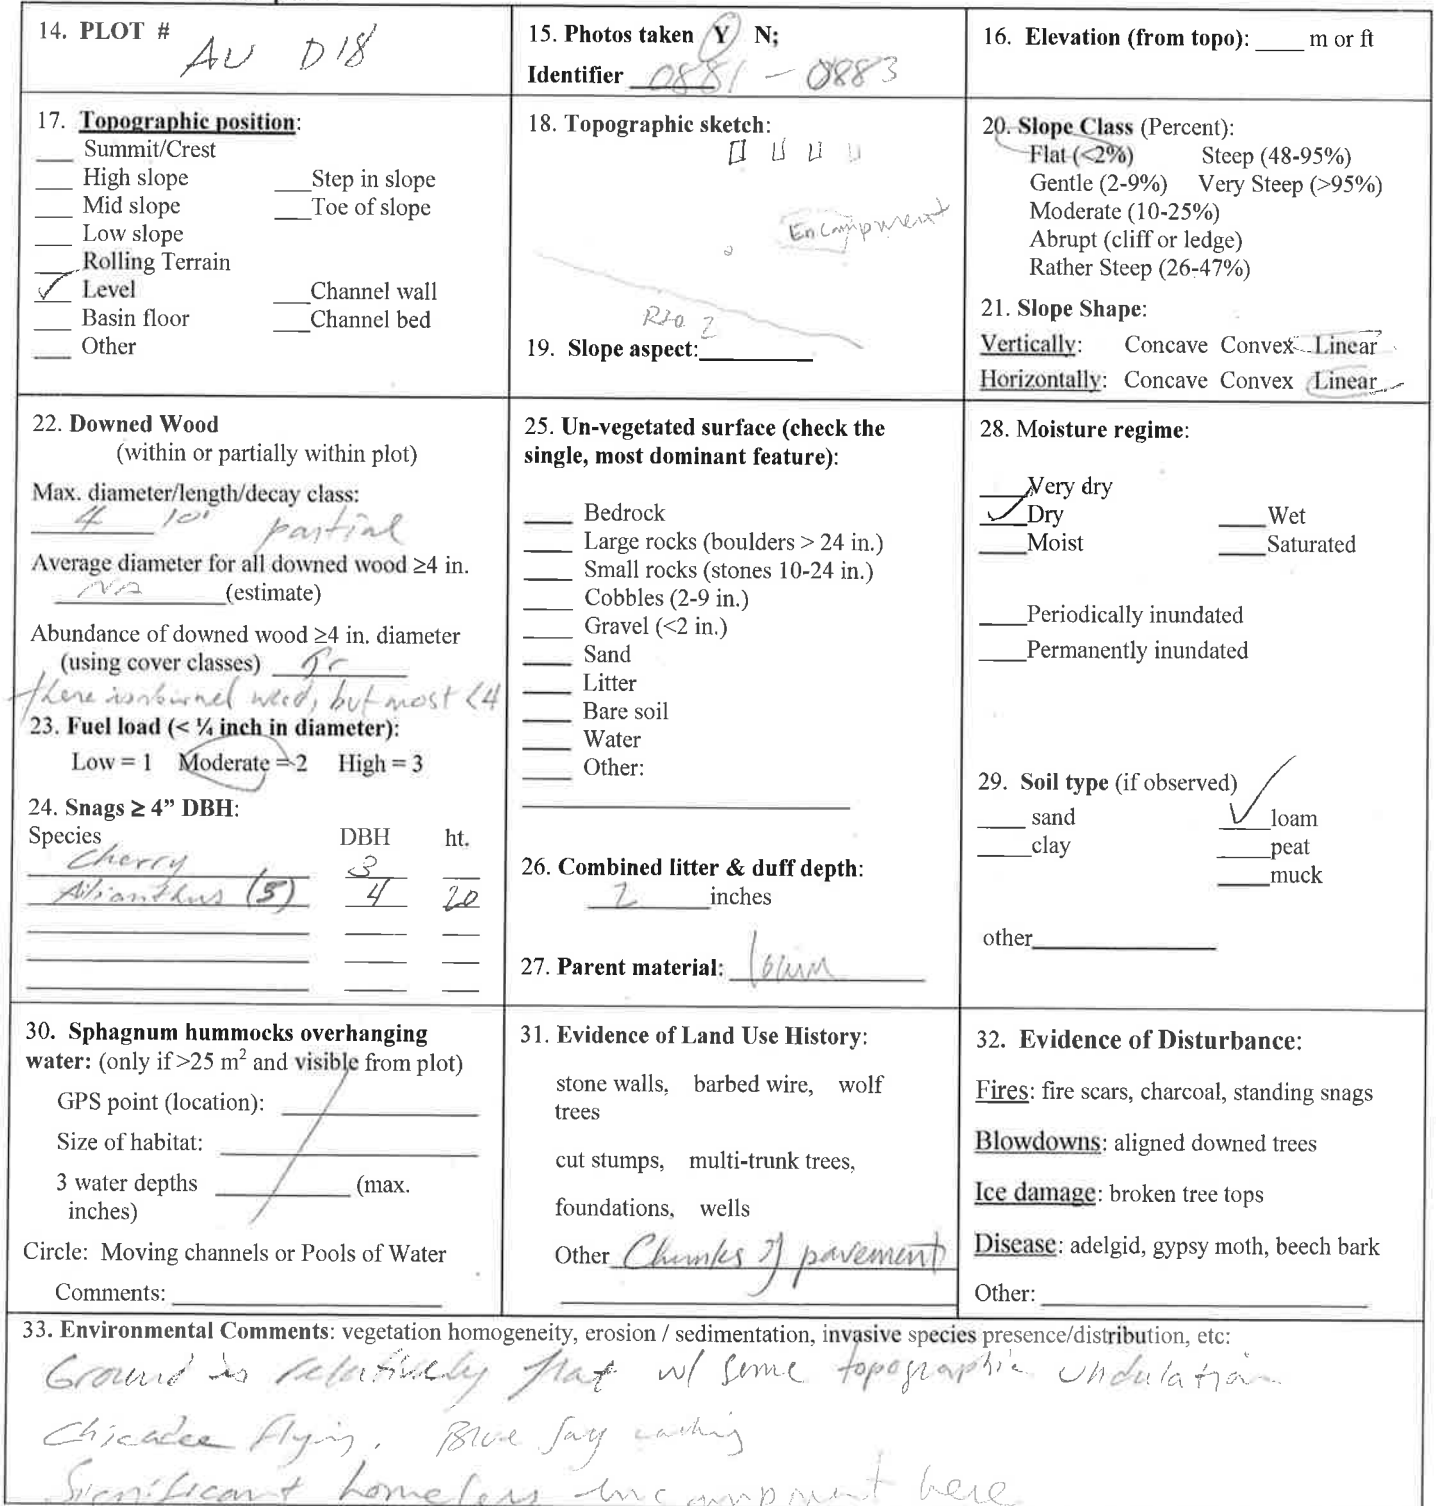 14. PLOT # AU D18
15. Photos taken Y N;
Identifier 0881 - 0883
16. Elevation (from topo): ____ m or ft
17. Topographic position:
___ Summit/Crest
___ High slope ___Step in slope
___ Mid slope ___Toe of slope
___ Low slope
___ Rolling Terrain
✓ Level ___Channel wall
___ Basin floor ___Channel bed
___ Other
18. Topographic sketch:
Encampment
19. Slope aspect:__________
20. Slope Class (Percent):
Flat (<2%) Steep (48-95%)
Gentle (2-9%) Very Steep (>95%)
Moderate (10-25%)
Abrupt (cliff or ledge)
Rather Steep (26-47%)
21. Slope Shape:
Vertically: Concave Convex Linear
Horizontally: Concave Convex Linear
22. Downed Wood
(within or partially within plot)
Max. diameter/length/decay class:
4 10' partial
Average diameter for all downed wood ≥4 in.
NA (estimate)
Abundance of downed wood ≥4 in. diameter
(using cover classes) Tr
there is wood, but most <4
23. Fuel load (< ¼ inch in diameter):
Low = 1 Moderate = 2 High = 3
24. Snags ≥ 4” DBH:
Species DBH ht.
Cherry 3
Ailianthus (5) 4 20
25. Un-vegetated surface (check the
single, most dominant feature):
____ Bedrock
____ Large rocks (boulders > 24 in.)
____ Small rocks (stones 10-24 in.)
____ Cobbles (2-9 in.)
____ Gravel (<2 in.)
____ Sand
____ Litter
____ Bare soil
____ Water
____ Other:
26. Combined litter & duff depth:
2 inches
27. Parent material: loam
28. Moisture regime:
____Very dry
✓ Dry ____Wet
____Moist ____Saturated
____Periodically inundated
____Permanently inundated
29. Soil type (if observed)
____ sand ✓ loam
____clay ____peat
____muck
other______________
30. Sphagnum hummocks overhanging
water: (only if >25 m² and visible from plot)
GPS point (location): ______________
Size of habitat: ______________
3 water depths __________ (max.
inches)
Circle: Moving channels or Pools of Water
Comments: ______________
31. Evidence of Land Use History:
stone walls, barbed wire, wolf
trees
cut stumps, multi-trunk trees,
foundations, wells
Other Chunks of pavement
32. Evidence of Disturbance:
Fires: fire scars, charcoal, standing snags
Blowdowns: aligned downed trees
Ice damage: broken tree tops
Disease: adelgid, gypsy moth, beech bark
Other: ______________
33. Environmental Comments: vegetation homogeneity, erosion / sedimentation, invasive species presence/distribution, etc:
Ground is relatively flat w/ some topographic undulation
Chicadee flying. Blue Jay
Significant homeless encampment here